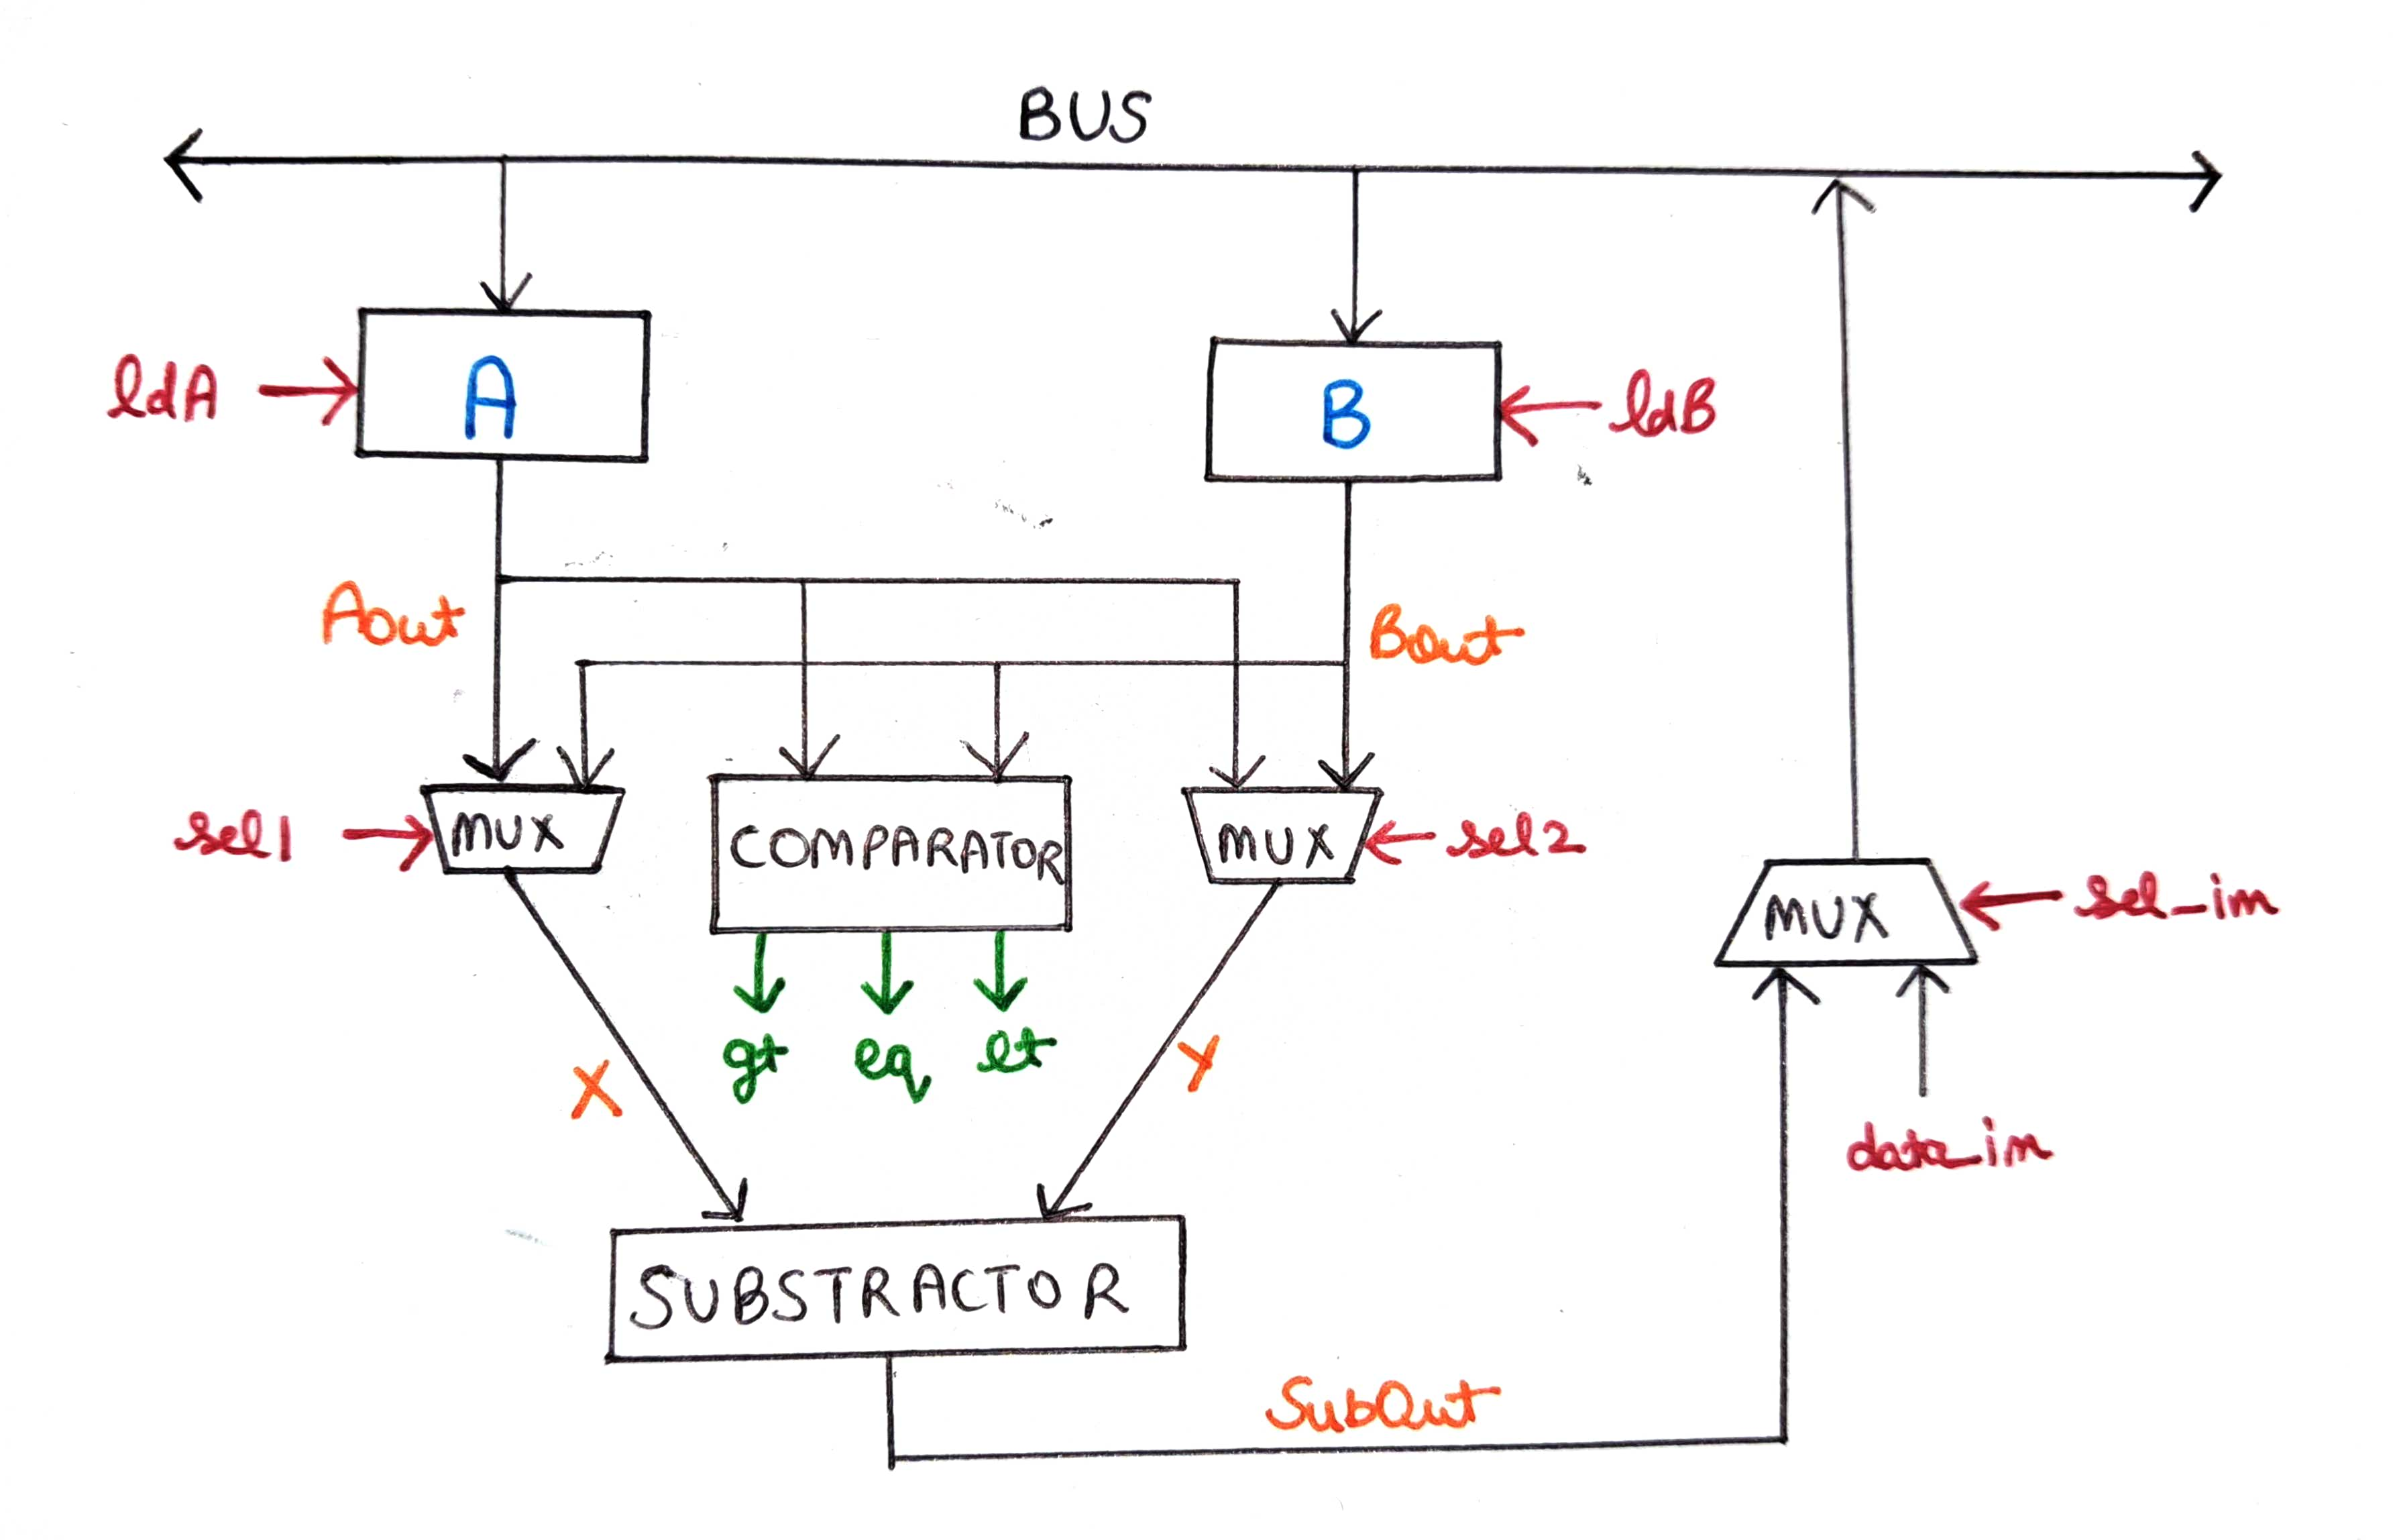 BUS
ldA
A
B
ldB
Aout
Bout
sel1
MUX
COMPARATOR
MUX
sel2
MUX
sel_in
gt
eq
lt
X
Y
data_in
SUBSTRACTOR
SubOut